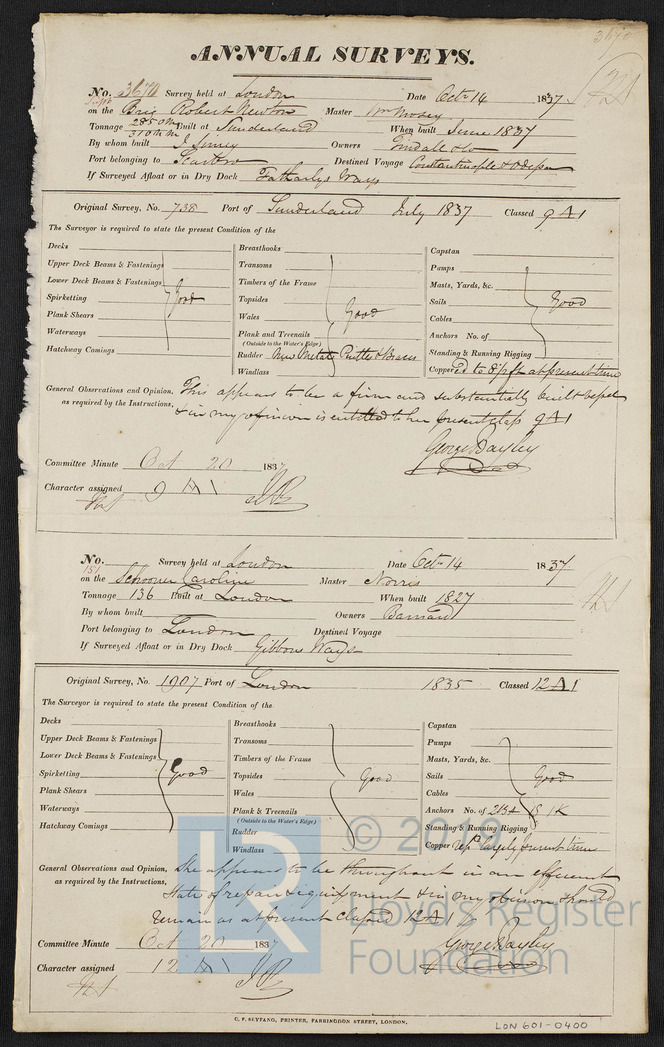 ANNUAL SURVEYS.
No. 3670 Survey held at London Date Octr 14 1837
on the Brig Robert Newton Master Wm
Tonnage 285 OM 310 NM Built at Sunderland When built June 1837
By whom built J. Owners Tindall & Co
Port belonging to Scarbro Destined Voyage Constantinople & Odessa
If Surveyed Afloat or in Dry Dock Ways
Original Survey, No. 738 Port of Sunderland July 1837 Classed 9 A 1
The Surveyor is required to state the present Condition of the
Decks
Upper Deck Beams & Fastenings
Lower Deck Beams & Fastenings
Spirketting Good
Plank Shears
Waterways
Hatchway Comings
Breasthooks
Transoms
Timbers of the Frame
Topsides
Wales Good
Plank and Treenails
(Outside to the Water's Edge)
Rudder New Metal Pintles & Braces
Windlass
Capstan
Pumps
Masts, Yards, &c.
Sails Good
Cables
Anchors No. of
Standing & Running Rigging
Coppered to 8½ ft at present time
General Observations and Opinion, This appears to be a firm and substantially built vessel
as required by the Instructions, & in my opinion is entitled to her present class 9 A 1
George Bayley
Committee Minute Oct 20 1837
Character assigned 9 A 1
No. 151 Survey held at London Date Octr 14 1837
on the Schooner Caroline Master Norris
Tonnage 136 Built at London When built 1827
By whom built Owners Barnard
Port belonging to London Destined Voyage
If Surveyed Afloat or in Dry Dock Gibbons Ways
Original Survey, No. 1907 Port of London 1835 Classed 12 A 1
The Surveyor is required to state the present Condition of the
Decks
Upper Deck Beams & Fastenings
Lower Deck Beams & Fastenings
Spirketting Good
Plank Shears
Waterways
Hatchway Comings
Breasthooks
Transoms
Timbers of the Frame
Topsides Good
Wales
Plank & Treenails
(Outside to the Water's Edge)
Rudder
Windlass
Capstan
Pumps
Masts, Yards, &c.
Sails Good
Cables
Anchors No. of 2B & 1S 1K
Standing & Running Rigging
Copper present time
General Observations and Opinion, She appears to be throughout in an efficient
as required by the Instructions, State of repair & equipment & in my opinion should
remain as at present classed 12 A 1
Committee Minute Oct 20 1837 George Bayley
Character assigned 12 A 1
C. F. SEYFANG, PRINTER, FARRINGDON STREET, LONDON.
LON 601-0400
LR
© 2019
Lloyd's Register
Foundation